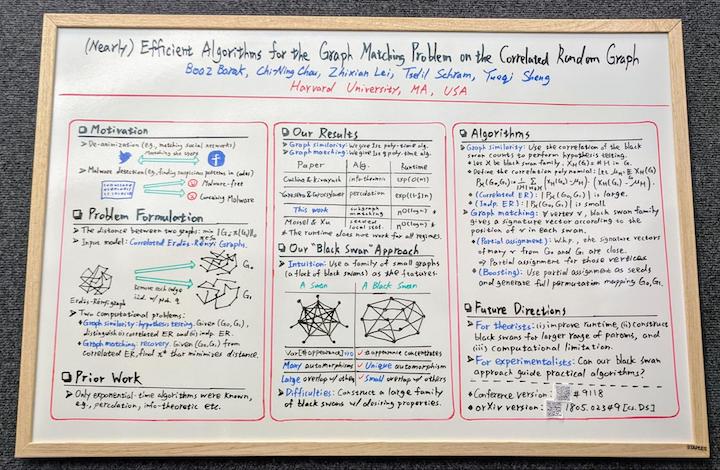 (Nearly) Efficient Algorithms for the Graph Matching Problem on the Correlated Random Graph
Boaz Barak, Chi-Ning Chou, Zhixian Lei, Tselil Schramm, Yueqi Sheng
Harvard University, MA, USA
Motivation
➢ De-animization (e.g., matching social networks)
matching the users
➢ Malware detection (e.g., finding suspicious patterns in codes)
Malware-free
Containing Malware
Problem Formulation
➢ The distance between two graphs: min ‖G₀ - π(G₁)‖₀
➢ Input model: Correlated Erdős-Rényi Graphs.
G₀
remove each edge
i.i.d. w/ prob.
G₁
Erdős-Rényi graph
➢ Two computational problems:
Graph similarity: hypothesis testing. Given (G₀,G₁),
distinguish (i) correlated ER and (ii) indp. ER.
Graph matching: recovery. Given (G₀,G₁) from
correlated ER, find π* that minimizes distance.
Prior Work
➢ Only exponential-time algorithms were known,
e.g., percolation, info-theoretic etc.
Our Results
➢ Graph similarity: We give 1st poly-time alg.
➢ Graph matching: We give 1st poly-time alg.
Paper Alg. Runtime
Cullina & Kiyavash info-theoretic exp(O(n))
Yartseva & Grossglauser percolation
This work subgraph matching
Mossel & Xu seeded local stat.
* The runtime does not work for all regimes.
Our "Black Swan" Approach
➢ Intuition: Use a family of small graphs
(a flock of black swans) as the features.
A Swan A Black Swan
Var[#appearance] ✓ #appearance concentrates
Many automorphisms ✓ Unique automorphism
Large overlap w/ others ✓ Small overlap w/ others
➢ Difficulties: Construct a large family
of black swans w/ desiring properties.
Algorithms
➢ Graph similarity: Use the correlation of the black
swan counts to perform hypothesis testing.
Let ℋ be black swan family, X_H(G) = # H in G.
Define the correlation polynomial:
(Correlated ER): |P_ℋ(G₀,G₁)| is large.
(Indp. ER): |P_ℋ(G₀,G₁)| is small.
➢ Graph matching: ∀ vertex v, black swan family
gives a signature vector according to the
position of v in each swan.
(Partial assignment): W.h.p., the signature vectors
of many v from G₀ and G₁ are close.
⇒ Partial assignment for those vertices
(Boosting): Use partial assignment as seeds
and generate full permutation mapping G₀,G₁.
Future Directions
➢ For theorists: (i) improve runtime, (ii) construct
black swans for larger range of params, and
(iii) computational limitation.
➢ For experimentalists: Can our black swan
approach guide practical algorithms?
Conference version: #9118
arXiv version: 1805.02349 [cs.DS]
STAPLES